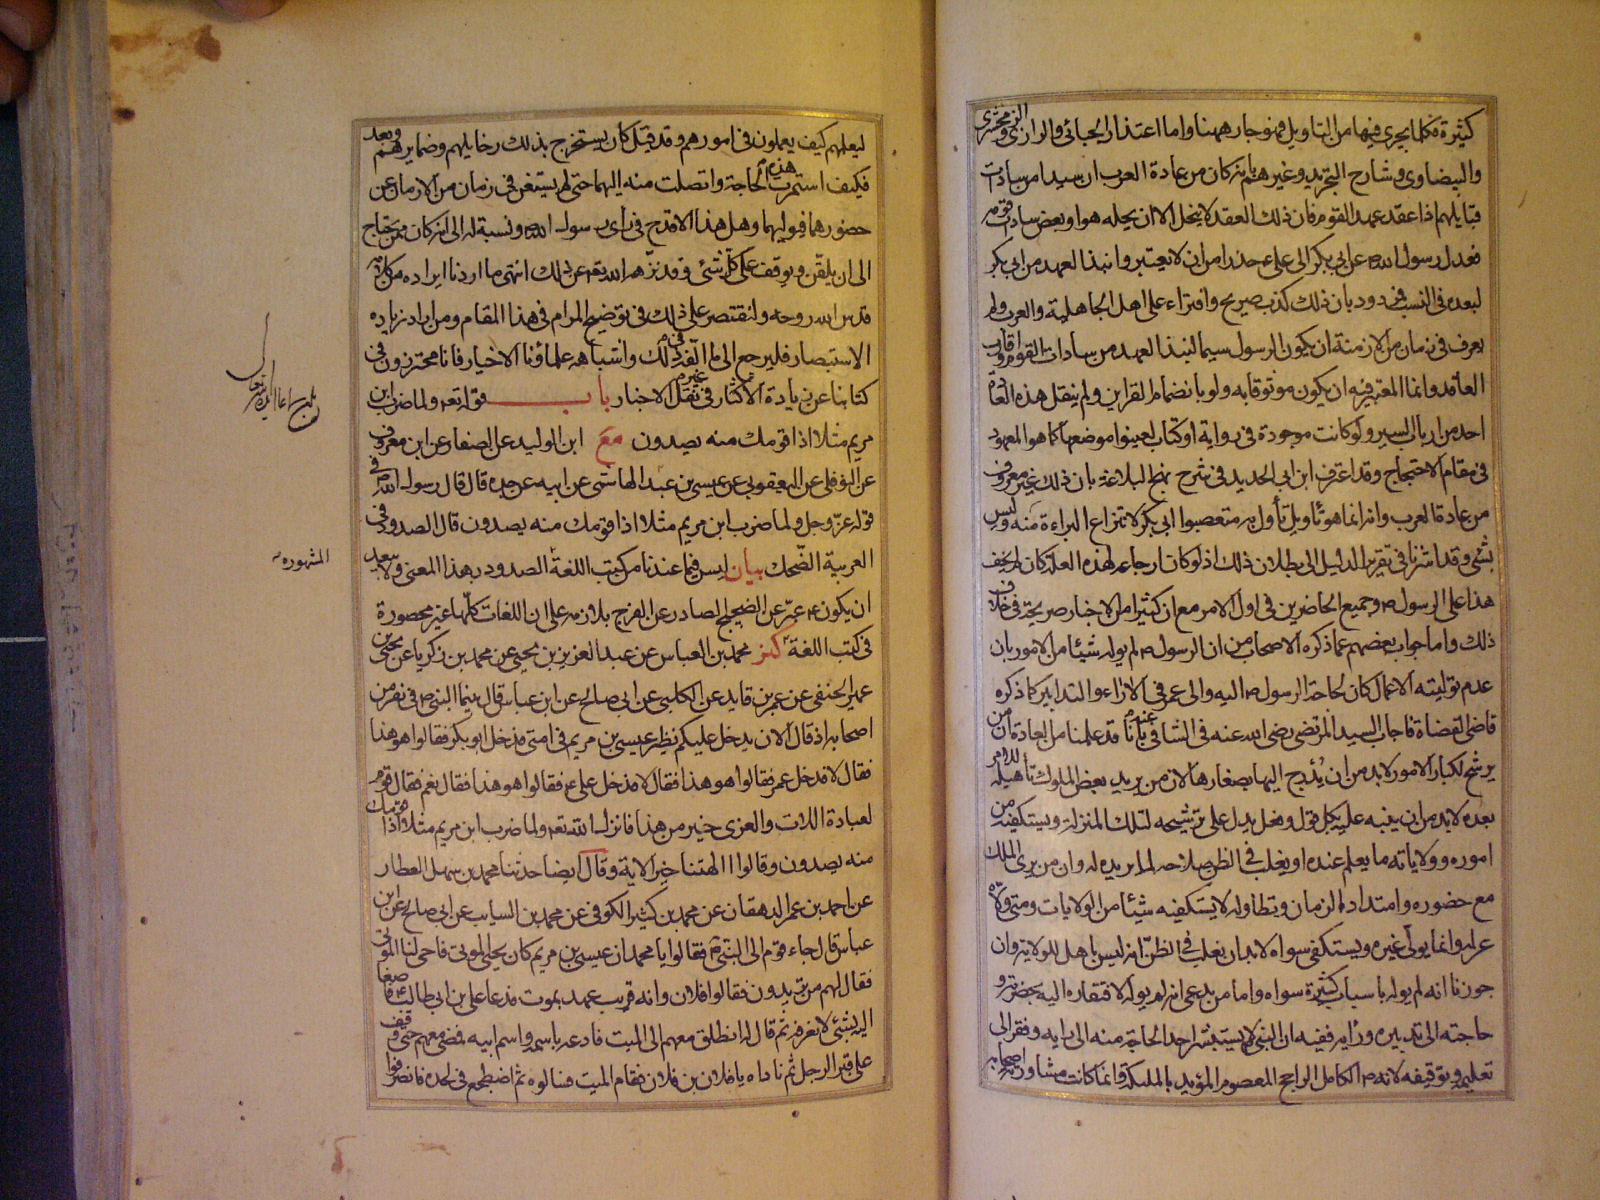 كثيرة فكلما يجرى فيها من التاويل فهو جار ههنا واما اعتذار الجبائى والرازى والزمخشرى
والبيضاوى وشارح التجريد وغيرهم بانه كان من عادة العرب ان سيدا من سادات
قبايلهم اذا عقد عهد القوم فان ذلك العقد لا ينحل الا ان يحله هو او بعض سادات قومه
فعدل رسول الله ص عن ابى بكر الى على ع حذرا من ان لا يعتبروا نبذ العهد من ابى بكر
لبعده فى النسب فمردود بان ذلك كذب صريح وافتراء على اهل الجاهلية والعرب ولم
يعرف فى زمان من الازمنة ان يكون الرسول سيما لنبذ العهد من سادات القوم واقارب
العاقد وانما المعتبر فيه ان يكون موثوقا به ولو بانضمام القراين ولم ينقل هذه العادة
احد من ارباب السير ولو كانت موجودة فى رواية او كتاب لعينوا موضعها كما هو المعهود
فى مقام الاحتجاج وقد اعترف ابن ابى الحديد فى شرح نهج البلاغة بان ذلك غير معروف
من عادة العرب وانه انما هو تاويل تأول به متعصبوا ابى بكر لانتزاع البراءة منه وليس
بشئ وقد اشرنا فى تقرير الدليل الى بطلان ذلك اذ لو كان ارجاعه لهذه العلة كان لم يخف
هذا على الرسول ص وجميع الحاضرين فى اول الامر مع ان كثيرا من الاخبار صريحة فى خلاف
ذلك واما جواب بعضهم عما ذكره الاصحاب من ان الرسول ص لم يوله شيئا من الامور بان
عدم توليته الاعمال كان لحاجة الرسول ص اليه والى عمر فى الآراء والتدابير كما ذكره
قاضى القضاة فاجاب السيد المرتضى رضى الله عنه فى الشافى عنه بانا قد علمنا من العادة ان من
يرشح لكبار الامور لابد من ان يُدرج اليها بصغارها لان من يريد بعض الملوك تأهيله للامر
بعده لابد من ان ينبه عليه بكل قول وفعل يدل على ترشيحه لتلك المنزلة ويستكفيه من
اموره وولاياته ما يعلم عنده او يغلب فى الظن صلاحه لما يريده له وان من يرى الملك
مع حضوره وامتداد الزمان وتطاوله لا يستكفيه شيئا من الولايات ومتى ولاه
عزله وانما يولى غيره ويستكفى سواه لابد ان يغلب فى الظن انه ليس باهل للولاية وان
جوزنا انه لم يوله باسباب كثيرة سواه واما من يدعى انه لم يوله لافتقاره اليه بحضرته و
حاجته الى تدبيره ورأيه ففيه ان النبى ص لا يستشير احدا لحاجة منه الى رايه وفقر الى
تعليمه وتوقيفه لانه ص الكامل الراجح المعصوم المؤيد بالملئكة وانما كانت مشاورته اصحابه
ليعلمهم كيف يعملون فى امورهم وقد قيل كان يستخرج بذلك دخايلهم وضمايرهم وبعد
فكيف استمرت هذه الحاجة واتصلت منه اليهما حتى لم يستغن فى زمان من الازمان عن
حضورهما فيوليهما وهل هذا الا قدح فى رأى رسول الله ص ونسبة له الى انه كان ممن يحتاج
الى ان يلقّن ويوقف على كل شئ وقد نزهه الله تعه عن ذلك انتهى ما اردنا ايراده من كلامه
قدس الله روحه ولنقتصر على ذلك فى توضيح المرام فى هذا المقام ومن اراد زيادة
الاستبصار فليرجع الى ما الّفه فى ذلك واشباهه علماؤنا الاخيار فانا محترزون فى
كتابنا عن زيادة الاكثار فى غير نقل الاخبار باب قوله تعه ولما ضرب ابن
مريم مثلا اذا قومك منه يصدون مع ابن الوليد عن الصفار عن ابن معروف
عن النوفلى عن اليعقوبى عن عيسى بن عبد الله الهاشمى عن ابيه عن جده قال قال رسول الله ص فى
قوله عز وجل ولما ضرب ابن مريم مثلا اذا قومك منه يصدون قال الصدود فى
العربية الضحك بيان ليس فيما عندنا من كتب اللغة الصدود بهذا المعنى ولا يبعد
المشهورة
ان يكون ع عبّر عن الضجيج الصادر عن الفرح بلازمه على ان اللغات كلها غير محصورة
فى كتب اللغة كنز محمد بن العباس عن عبد العزيز بن يحيى عن محمد بن زكريا عن يحيى بن
عمير الحنفى عن عمر بن قايد عن الكلبى عن ابى صالح عن ابن عباس قال بينما النبى ص فى نفر من
اصحابه اذ قال الآن يدخل عليكم نظير عيسى بن مريم فى امتى فدخل ابو بكر فقالوا هو هذا
فقال لا فدخل عمر فقالوا هو هذا فقال لا فدخل على ع فقالوا هو هذا فقال نعم فقال قوم
لعبادة اللات والعزى خير من هذا فانزل الله تعه ولما ضرب ابن مريم مثلا اذا قومك
منه يصدون وقالوا االهتنا خير الاية وقال ايضا حدثنا محمد بن سهل العطار
عن احمد بن عمر الدهقان عن محمد بن كثير الكوفى عن محمد بن السايب عن ابى صالح عن ابن
عباس قال جاء قوم الى النبى ص فقالوا يا محمد ان عيسى بن مريم كان يحيى الموتى فاحى لنا الموتى
فقال لهم من تريدون فقالوا فلان وانه قريب عهد بموت فدعا على بن ابى طالب ع فاصغا
اليه بشئ لا نعرفه ثم قال له انطلق معهم الى الميت فادعه باسمه واسم ابيه فمضى معهم حتى وقف
على قبر الرجل ثم ناداه يا فلان بن فلان فقام الميت فسالوه ثم اضطجع فى لحده فانصرفوا